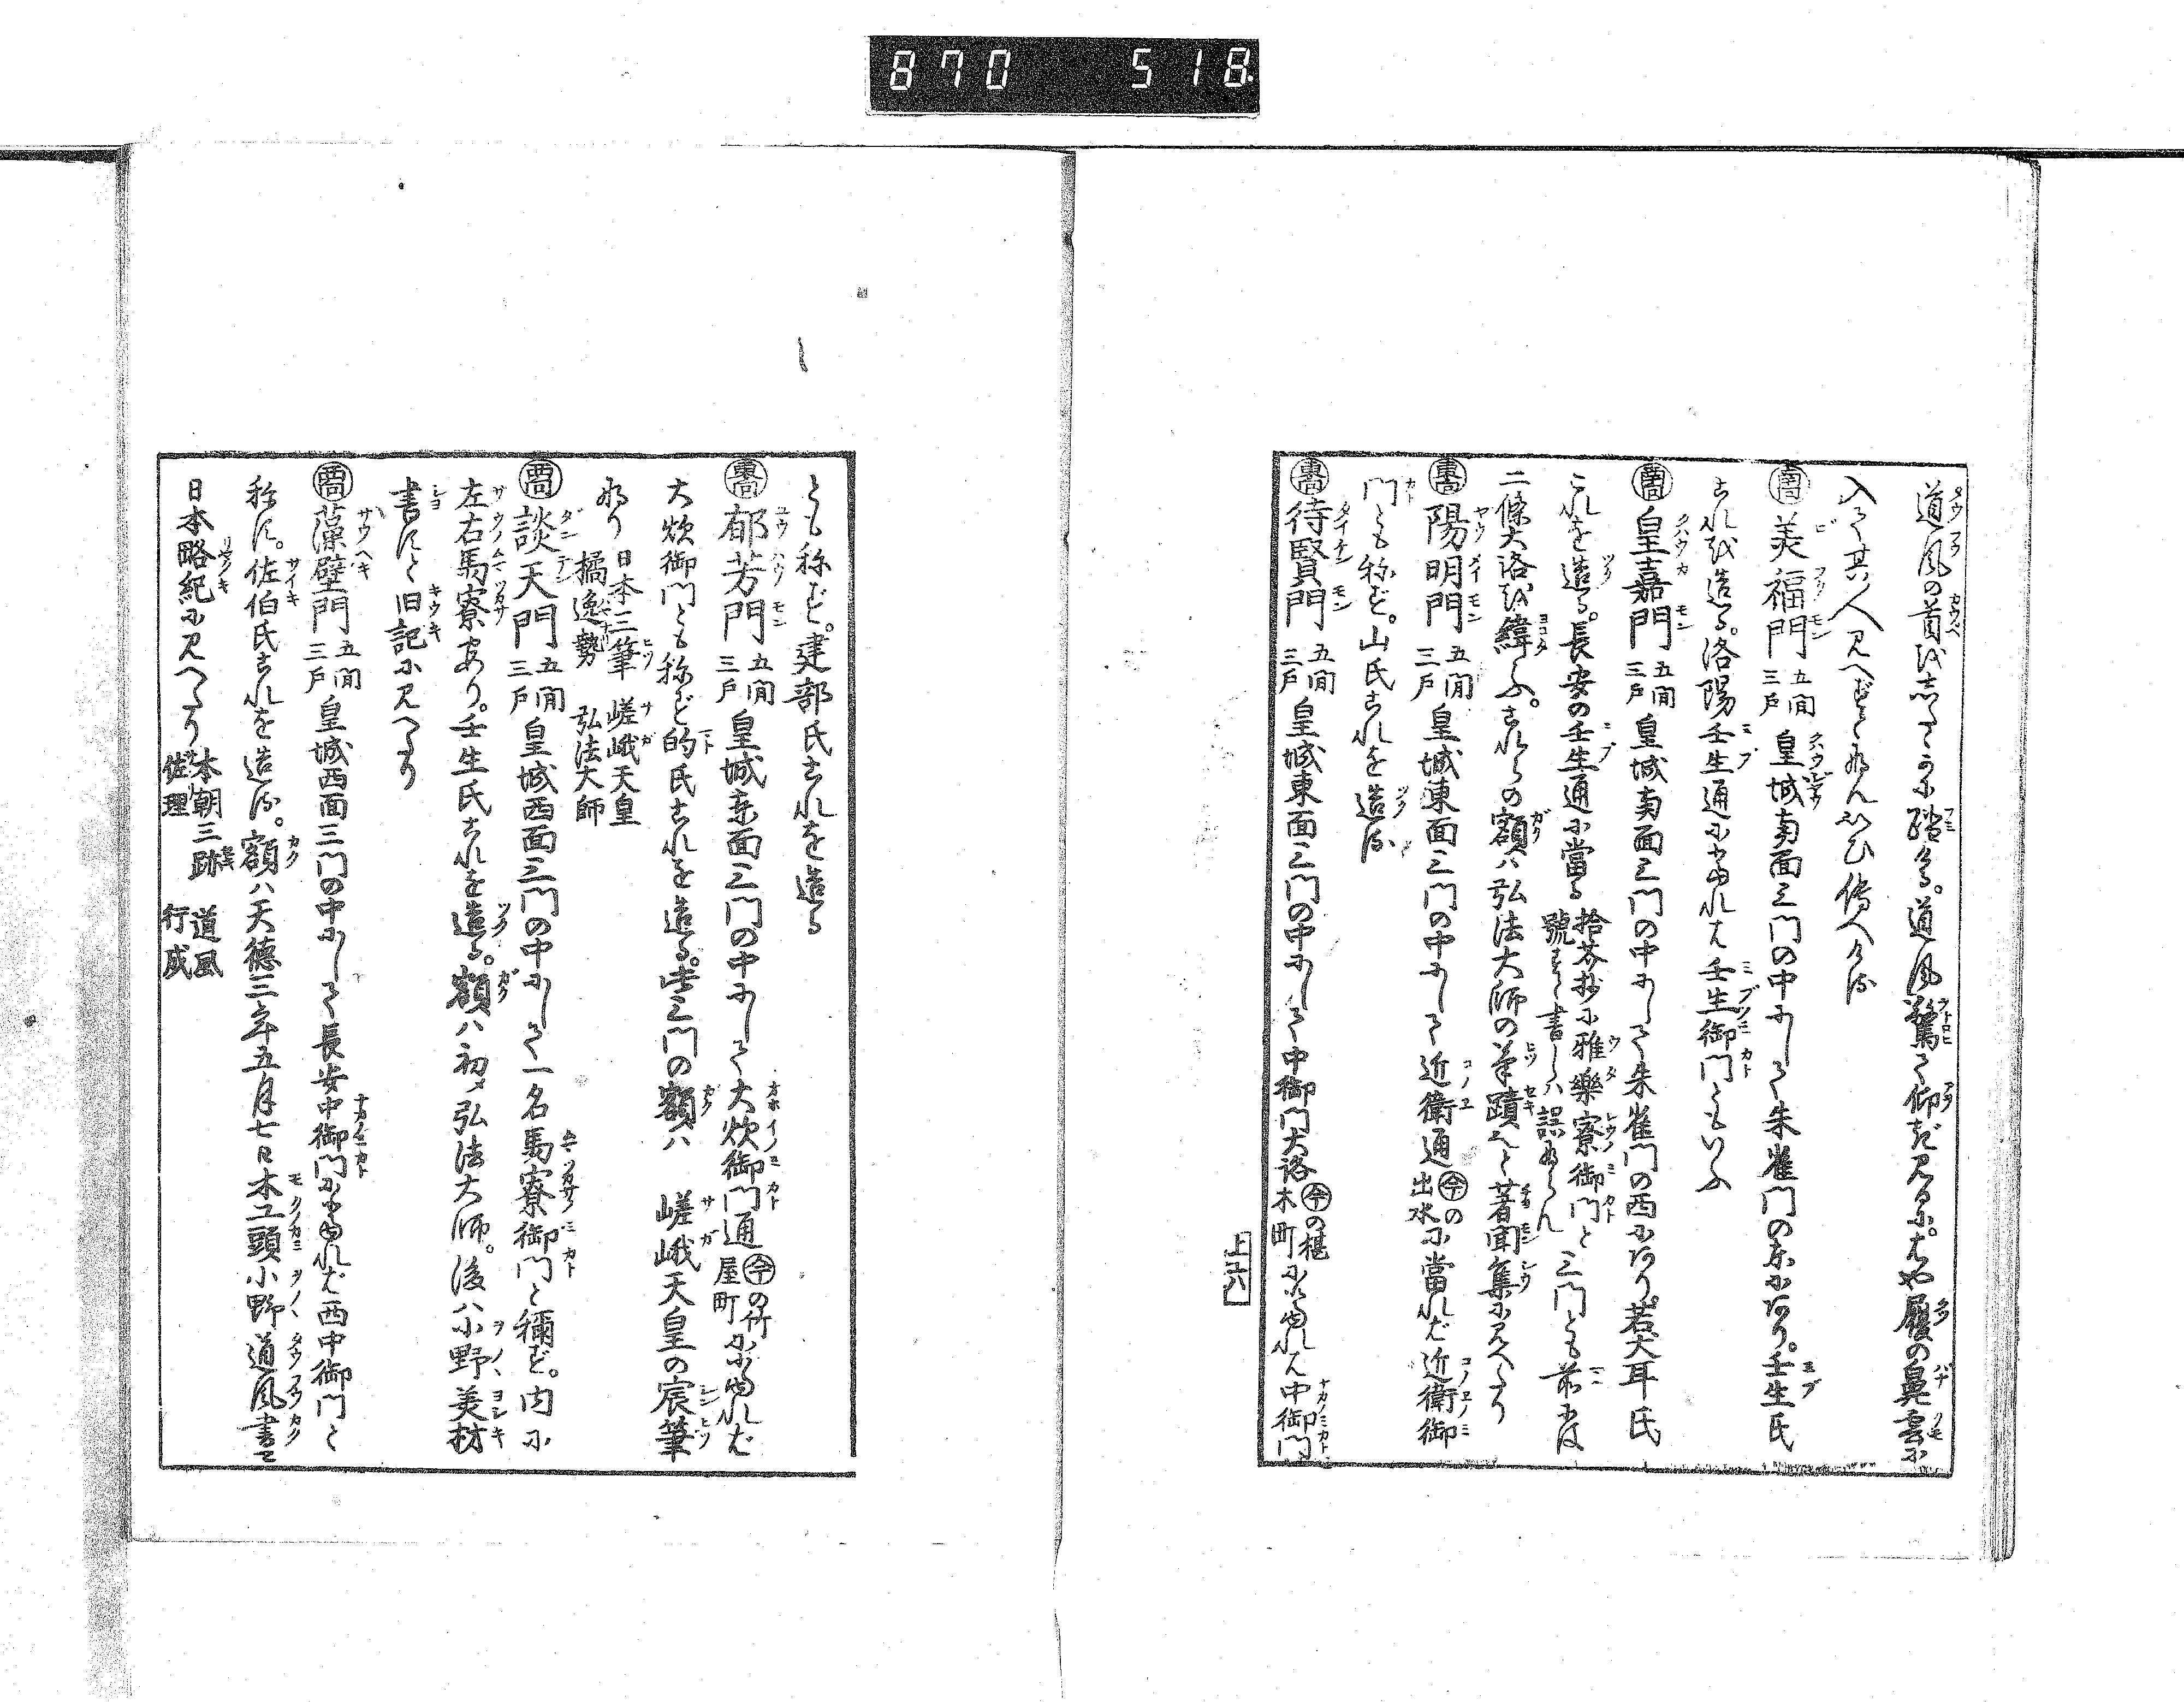 870 518
道風の首をしたゝかに踏ける。道風驚て仰ぎ見るに。はや履の鼻雲に
入て其人見へずとなん云ひ傳へける
南面 美福門 五間三戸 皇城南面三門の中にして朱雀門の東にあり。壬生氏
これを造る。洛陽壬生通に當れは壬生御門ともいふ
南面 皇嘉門 五間三戸 皇城南面三門の中にして朱雀門の西にあり。若犬耳氏
これを造る。長安の壬生通に當る 拾芥抄に雅樂寮御門と號すと書しハ誤ならん 三門とも前には
二條大路を緯ふ。これらの額ハ弘法大師の筆蹟と著聞集に見へたり
東面 陽明門 五間三戸 皇城東面三門の中にして近衛通 今の出水 に當れば近衛御
門とも称ず。山氏これを造る
東面 待賢門 五間三戸 皇城東面三門の中にして中御門大路 今の椹木町 に當れは中御門
上ノ六
とも称ず。建部氏これを造る
東面 郁芳門 五間三戸 皇城東面三門の中にして大炊御門通 今の竹屋町 に當れば
大炊御門とも称ず的氏これを造る。此三門の額ハ 嵯峨天皇の宸筆
なり 日本三筆 嵯峨天皇 橘逸勢 弘法大師
西面 談天門 五間三戸 皇城西面三門の中にして一名馬寮御門と稱ず。内に
左右馬寮あり。壬生氏これを造る。額ハ初メ弘法大師。後ハ小野美材
書すと旧記に見へたり
西面 藻壁門 五間三戸 皇城西面三門の中にして長安中御門に當れば西中御門と
称す。佐伯氏これを造る。額ハ天徳三年五月七日木工頭小野道風書と
日本略紀に見へたり 本朝三跡 道風 佐理 行成